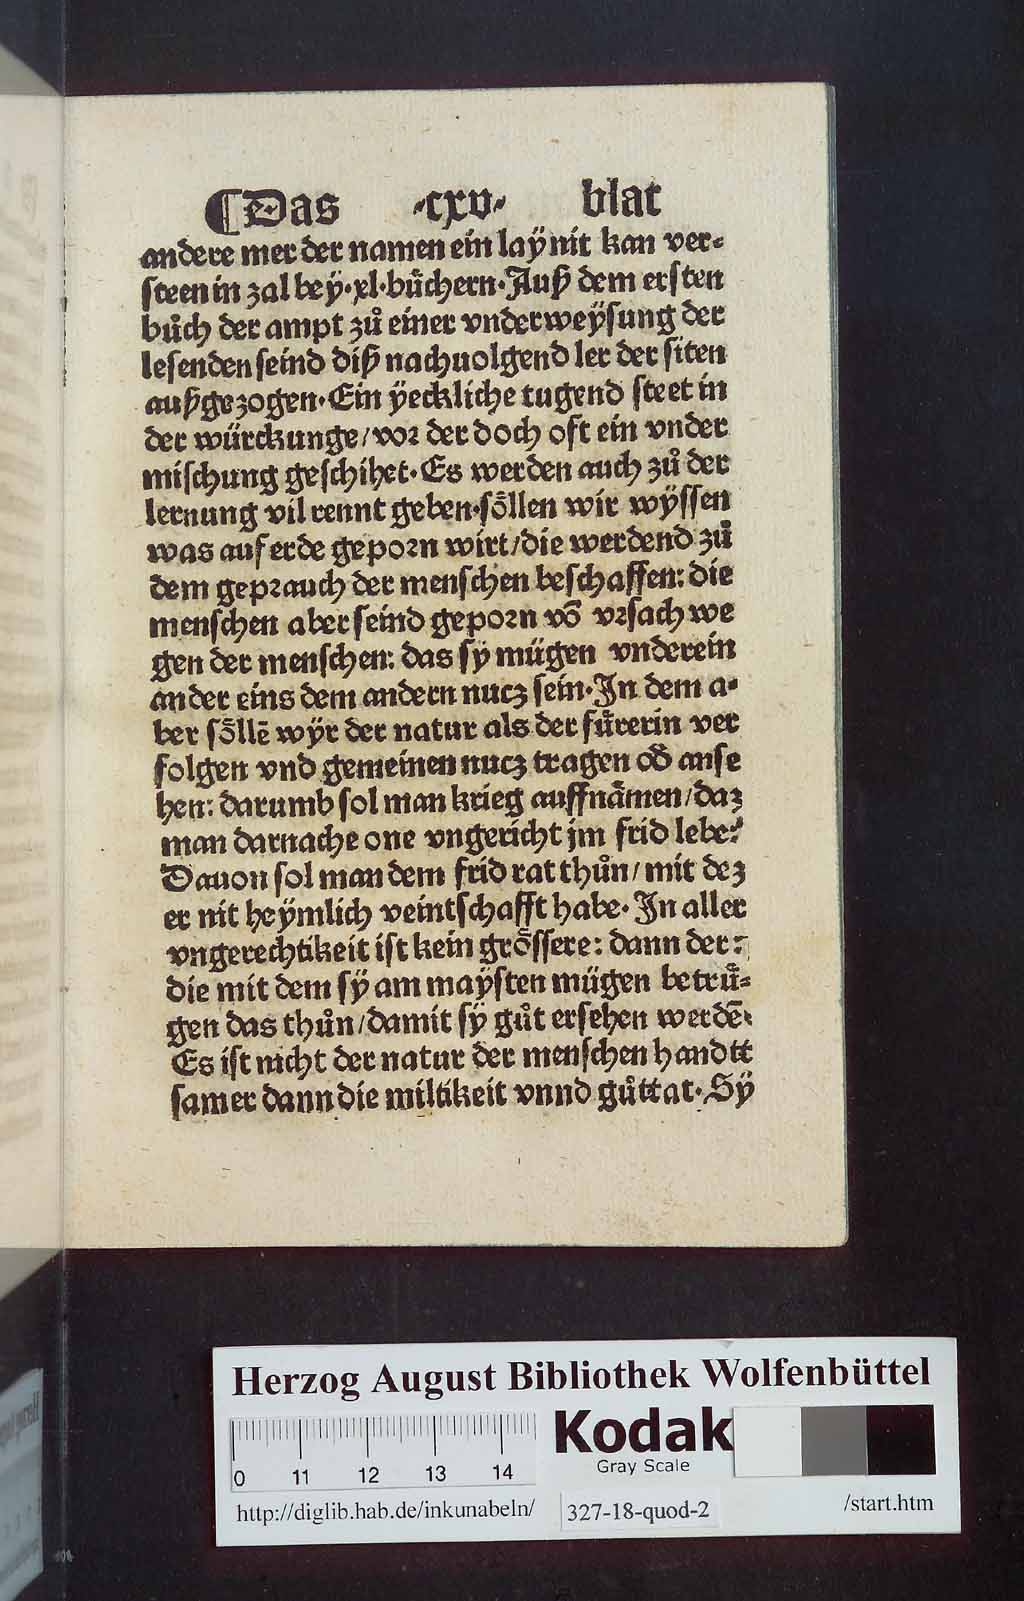 ¶Das ·cxv· blat
andere mer der namen ein laÿ nit kan ver⸗
steen in zal beÿ·xl·bůchern·Auß dem ersten
bůch der ampt zů einer vnderweÿsung der
lesenden seind diß nachuolgend ler der siten
außgezogen·Ein ÿeckliche tugend steet in
der würckunge/vor der doch oft ein vnder
mischung geschihet·Es werden auch zů der
lernung vil rennt geben·söllen wir wÿssen
was auf erde geporn wirt/die werdend zů
dem geprauch der menschen beschaffen: die
menschen aber seind geporn vō vrsach we
gen der menschen: das sÿ mügen vnderein
ander eins dem andern nucz sein·In dem a⸗
ber söllē wÿr der natur als der fürerin ver
folgen vnd gemeinen nucz tragen od̄ anse
hen: darumb sol man krieg auffnämen/daz
man darnache one vngericht jm frid lebe:
Dauon sol man dem frid rat thůn/mit dez
er nit heÿmlich veintschafft habe·In aller
vngerechtikeit ist kein grössere: dann der:
die mit dem sÿ am maÿsten mügen betrü⸗
gen das thůn/damit sÿ gůt ersehen werdē·
Es ist nicht der natur der menschen handtt
samer dann die miltikeit vnnd gůttat·Sÿ
Herzog August Bibliothek Wolfenbüttel
0 11 12 13 14
Kodak
Gray Scale
http://diglib.hab.de/inkunabeln/ 327-18-quod-2 /start.htm